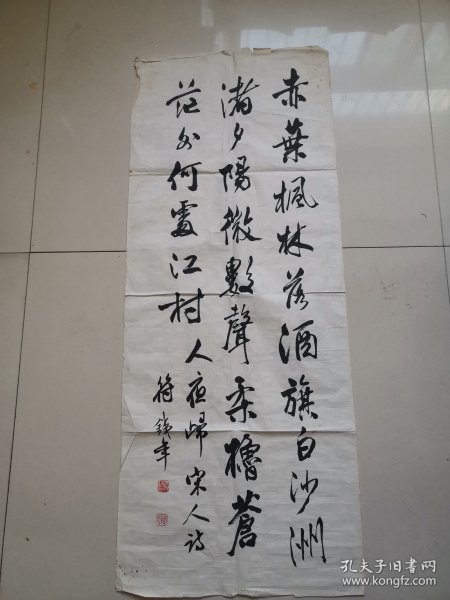 赤葉楓林落酒旗白沙洲
渚夕陽微數聲柔櫓蒼
茫外何處江村人夜歸宋人詩
符鐵年
孔夫子旧书网
www.kongfz.com